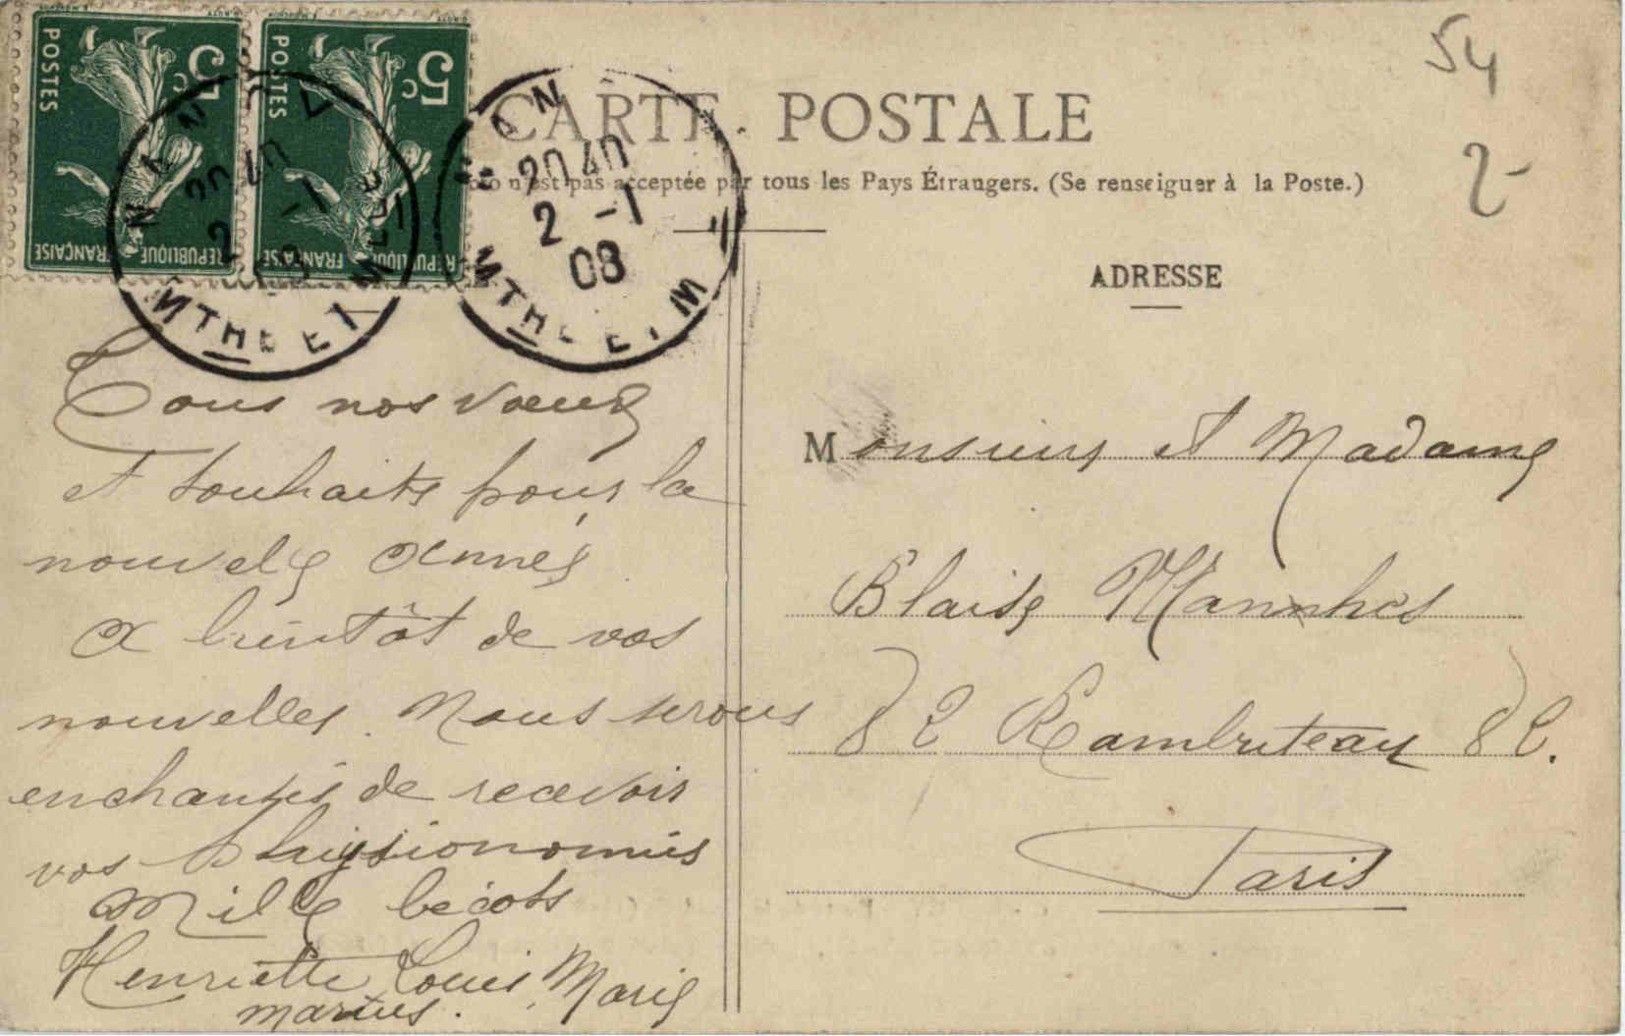 POSTES
5c
RÉPUBLIQUE FRANÇAISE
POSTES
5c
RÉPUBLIQUE FRANÇAISE
20 40
2 -1
08
MTHE ET M
20 40
2 -1
08
MTHE ET M
54
2-
CARTE POSTALE
n'est pas acceptée par tous les Pays Étrangers. (Se renseigner à la Poste.)
ADRESSE
Tous nos vœux
et souhaits pour la
nouvelle année
A bientôt de vos
nouvelles. Nous serons
enchantés de recevoir
vos physionomies
Mille bécots
Henriette Louis Marie
marius.
Monsieur et Madame
Blaise Mannhes
82 Rambuteau 82.
Paris